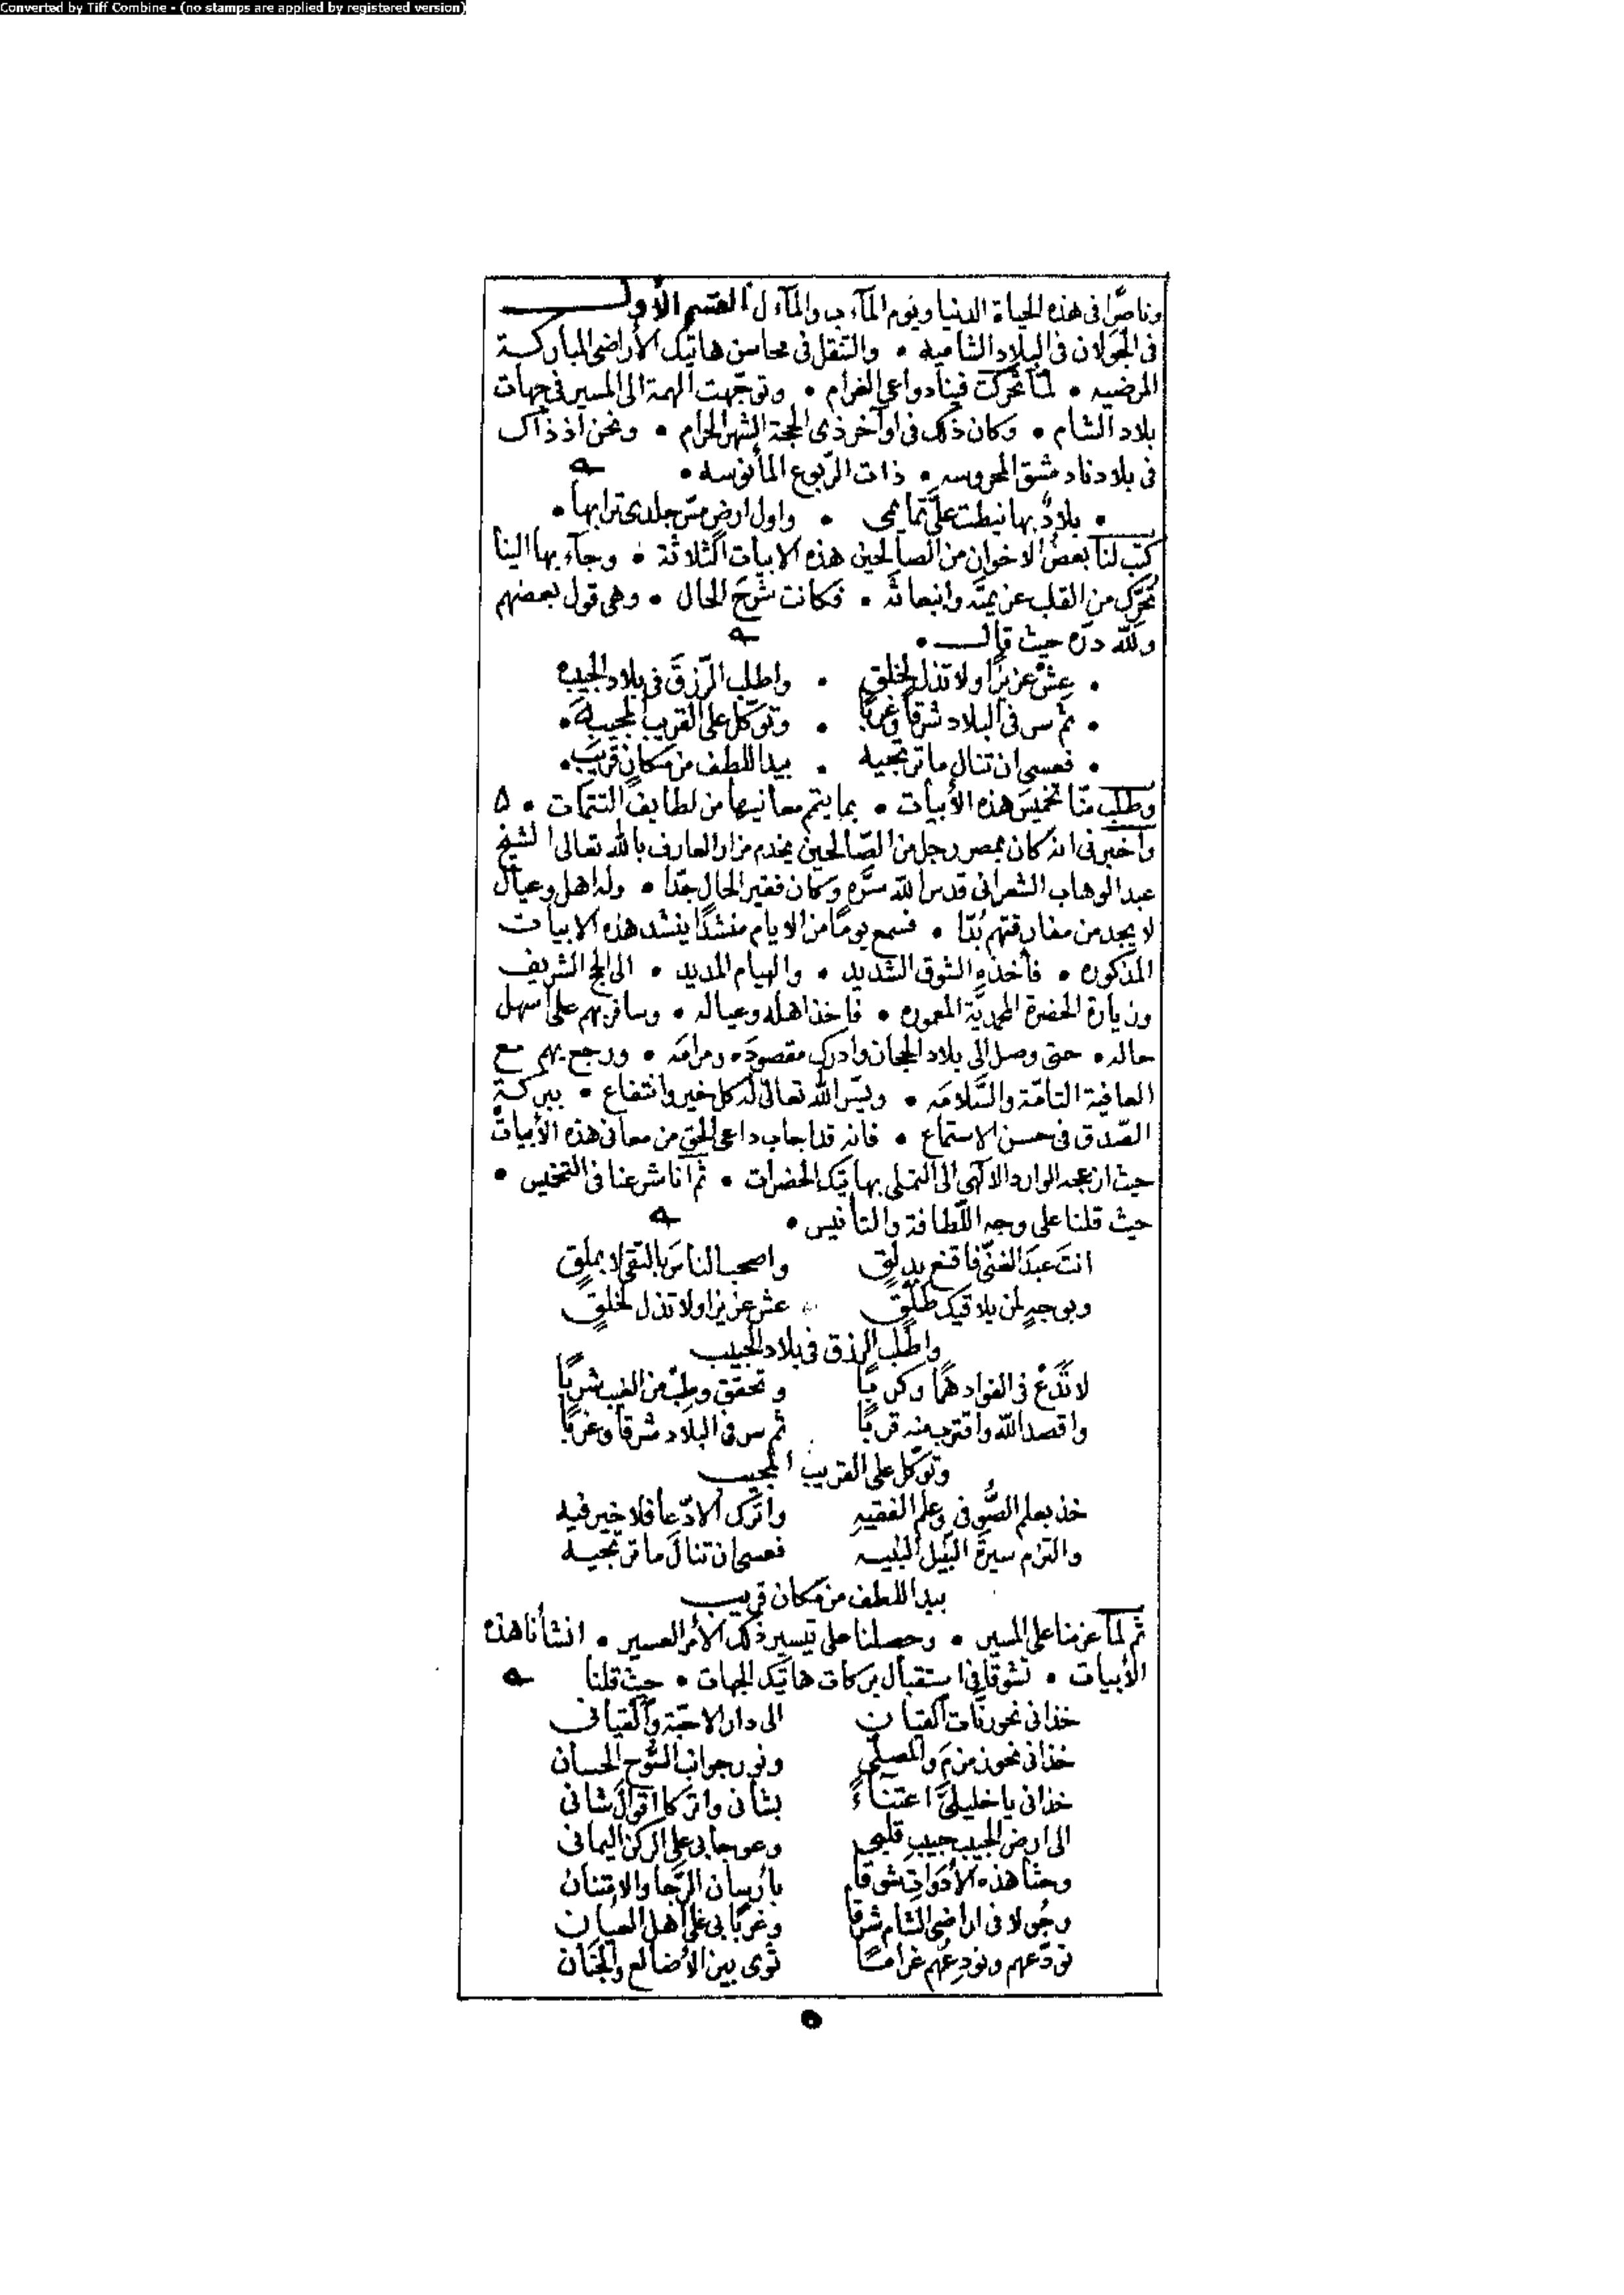 Converted by Tiff Combine - (no stamps are applied by registered version)
وناصرًا فى هذه الحياة الدنيا ويوم المآءب والمآءل القسم الأول
فى الجولان فى البلاد الشامية • والتنقل فى محاسن هاتيك الأراضى المباركة
المرضيه • لما تحرك فينا دواعى الغرام • وتوجّهت الهمة الى المسير فى جهات
بلاد الشام • وكان ذلك فى اواخر ذى الحجة الشهر الحرام • ونحن اذ ذاك
فى بلادنا دمشق المحروسه • ذات الرّبوع المأنوسه •
• بلادٌ بها نيطت علىّ تمائمى • واول ارض مسّ جلدى ترابها •
كتب لنا بعض الاخوان من الصالحين هذه الابيات الثلاثة • وجآء بها الينا
تحرّك من القلب عزيمته وانبعاثه • فكانت شرح الحال • وهى قول بعضهم
ولله درّه حيث قال •
• عش عزيزًا ولا تذل لخلق • واطلب الرّزق فى بلاد الحبيب
• ثم سر فى البلاد شرقًا وغربًا • وتوكّل على القريب المجيب •
• فعسى ان تنال ما ترتجيه • بيد اللطف من مكان قريب •
وطلب منّا تخميس هذه الأبيات • بما يتم معانيها من لطايف التتمات • ۵
وأخبرنى انه كان بمصر رجل من الصّالحين يخدم مزار العارف بالله تعالى الشيخ
عبد الوهاب الشعرانى قدس الله سرّه وكان فقير الحال جدّا • وله اهل وعيال
لا يجد من مفارقتهم بُدّا • فسمع يومًا من الايام منشدًا ينشد هذه الابيات
المذكوره • فأخذه الشوق الشديد • والهيام المديد • الى الحج الشريف
وزيارة الحضرة المحمديّة المعموره • فاخذ اهله وعياله • وسافر بهم على اسهل
حاله • حتى وصل الى بلاد الحجاز وادرك مقصوده ومرامه • ورجع بهم مع
العافية التامّة والسّلامه • ويسّر الله تعالى له كل خير وانتفاع • ببركة
الصّدق فى حسن الاستماع • فانه قد اجاب داعى الحق من معانى هذه الأبيات
حيث ازعجه الوارد الالهى الى التملى بهاتيك الحضرات • ثم انا شرعنا فى التخميس •
حيث قلنا على وجه اللّطافة والتأنيس •
انت عبد الغنىّ فاقنع بدلق واصحب الناس بالتقى لا بملق
وبوجهٍ لمن يلاقيك طلق عش عزيزا ولا تذل لخلق
واطلب الرزق فى بلاد الحبيب
لا تدع فى الفواد همًّا وكربًا وتحقق وطب من الغيب شربًا
واقصد الله واقترب منه قربًا ثم سر فى البلاد شرقًا وغربًا
وتوكّل على القريب المجيب
خذ بعلم الصّوفى وعلم الفقيه واترك الادّعا فلا خير فيه
والتزم سيرة النبيل النبيه فعسى ان تنال ما ترتجيه
بيد اللطف من مكان قريب
ثم لما عزمنا على المسير • وحصلنا على تيسير ذلك الأمر العسير • انشأنا هذه
الأبيات • تشوقا فى استقبال بركات هاتيك الجهات • حيث قلنا
خذانى نحو رنّات القيان الى دار الاحبّة والقيانى
خذانى نحو زمزم والمصلى ونور جوانب السّوح الحسان
خذانى يا خليلىّ اعتناءً بشانى واتركا اقوال شانى
الى ارض الحبيب حبيب قلبى وعوجا بى على الركن اليمانى
وحثا هذه الأدوات شوقا بأرسان الرّجا والامتنان
وجُولا فى اراضى الشام شرقا وغربًا بى على اهل العيان
نودّعهم ونودعهم غرامًا ثوى بين الأضالع والجنان
٥